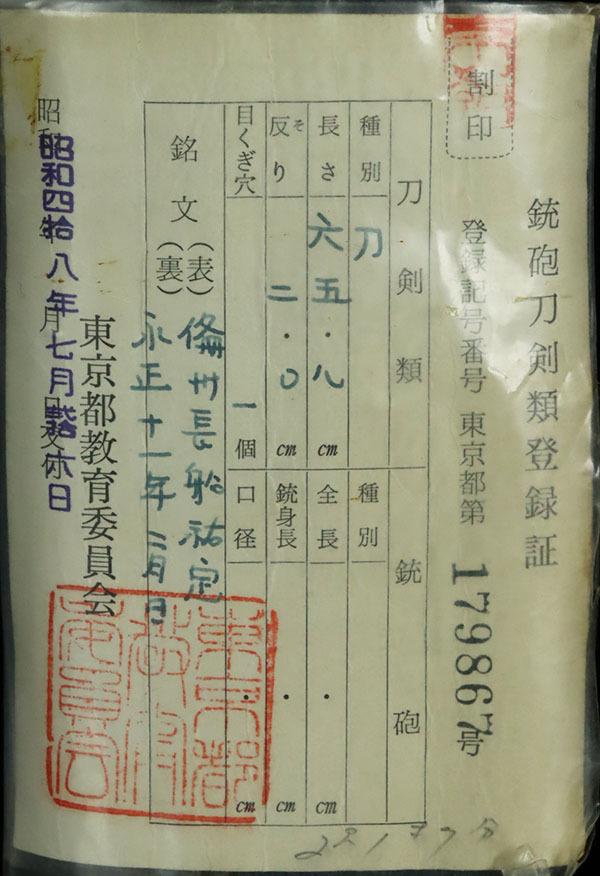 割印
銃砲刀剣類登録証
登録記号番号 東京都第 179867 号
刀剣類
銃砲
種別 刀
種別
長さ 六五・八 cm
全長 ・ cm
反り そ 二・〇 cm
銃身長 ・ cm
目くぎ穴 一 個
口径 ・ cm
銘文 (表) 備州長船祐定
(裏) 永正十一年二月日
東京都教育委員会
昭和四拾八年七月
日